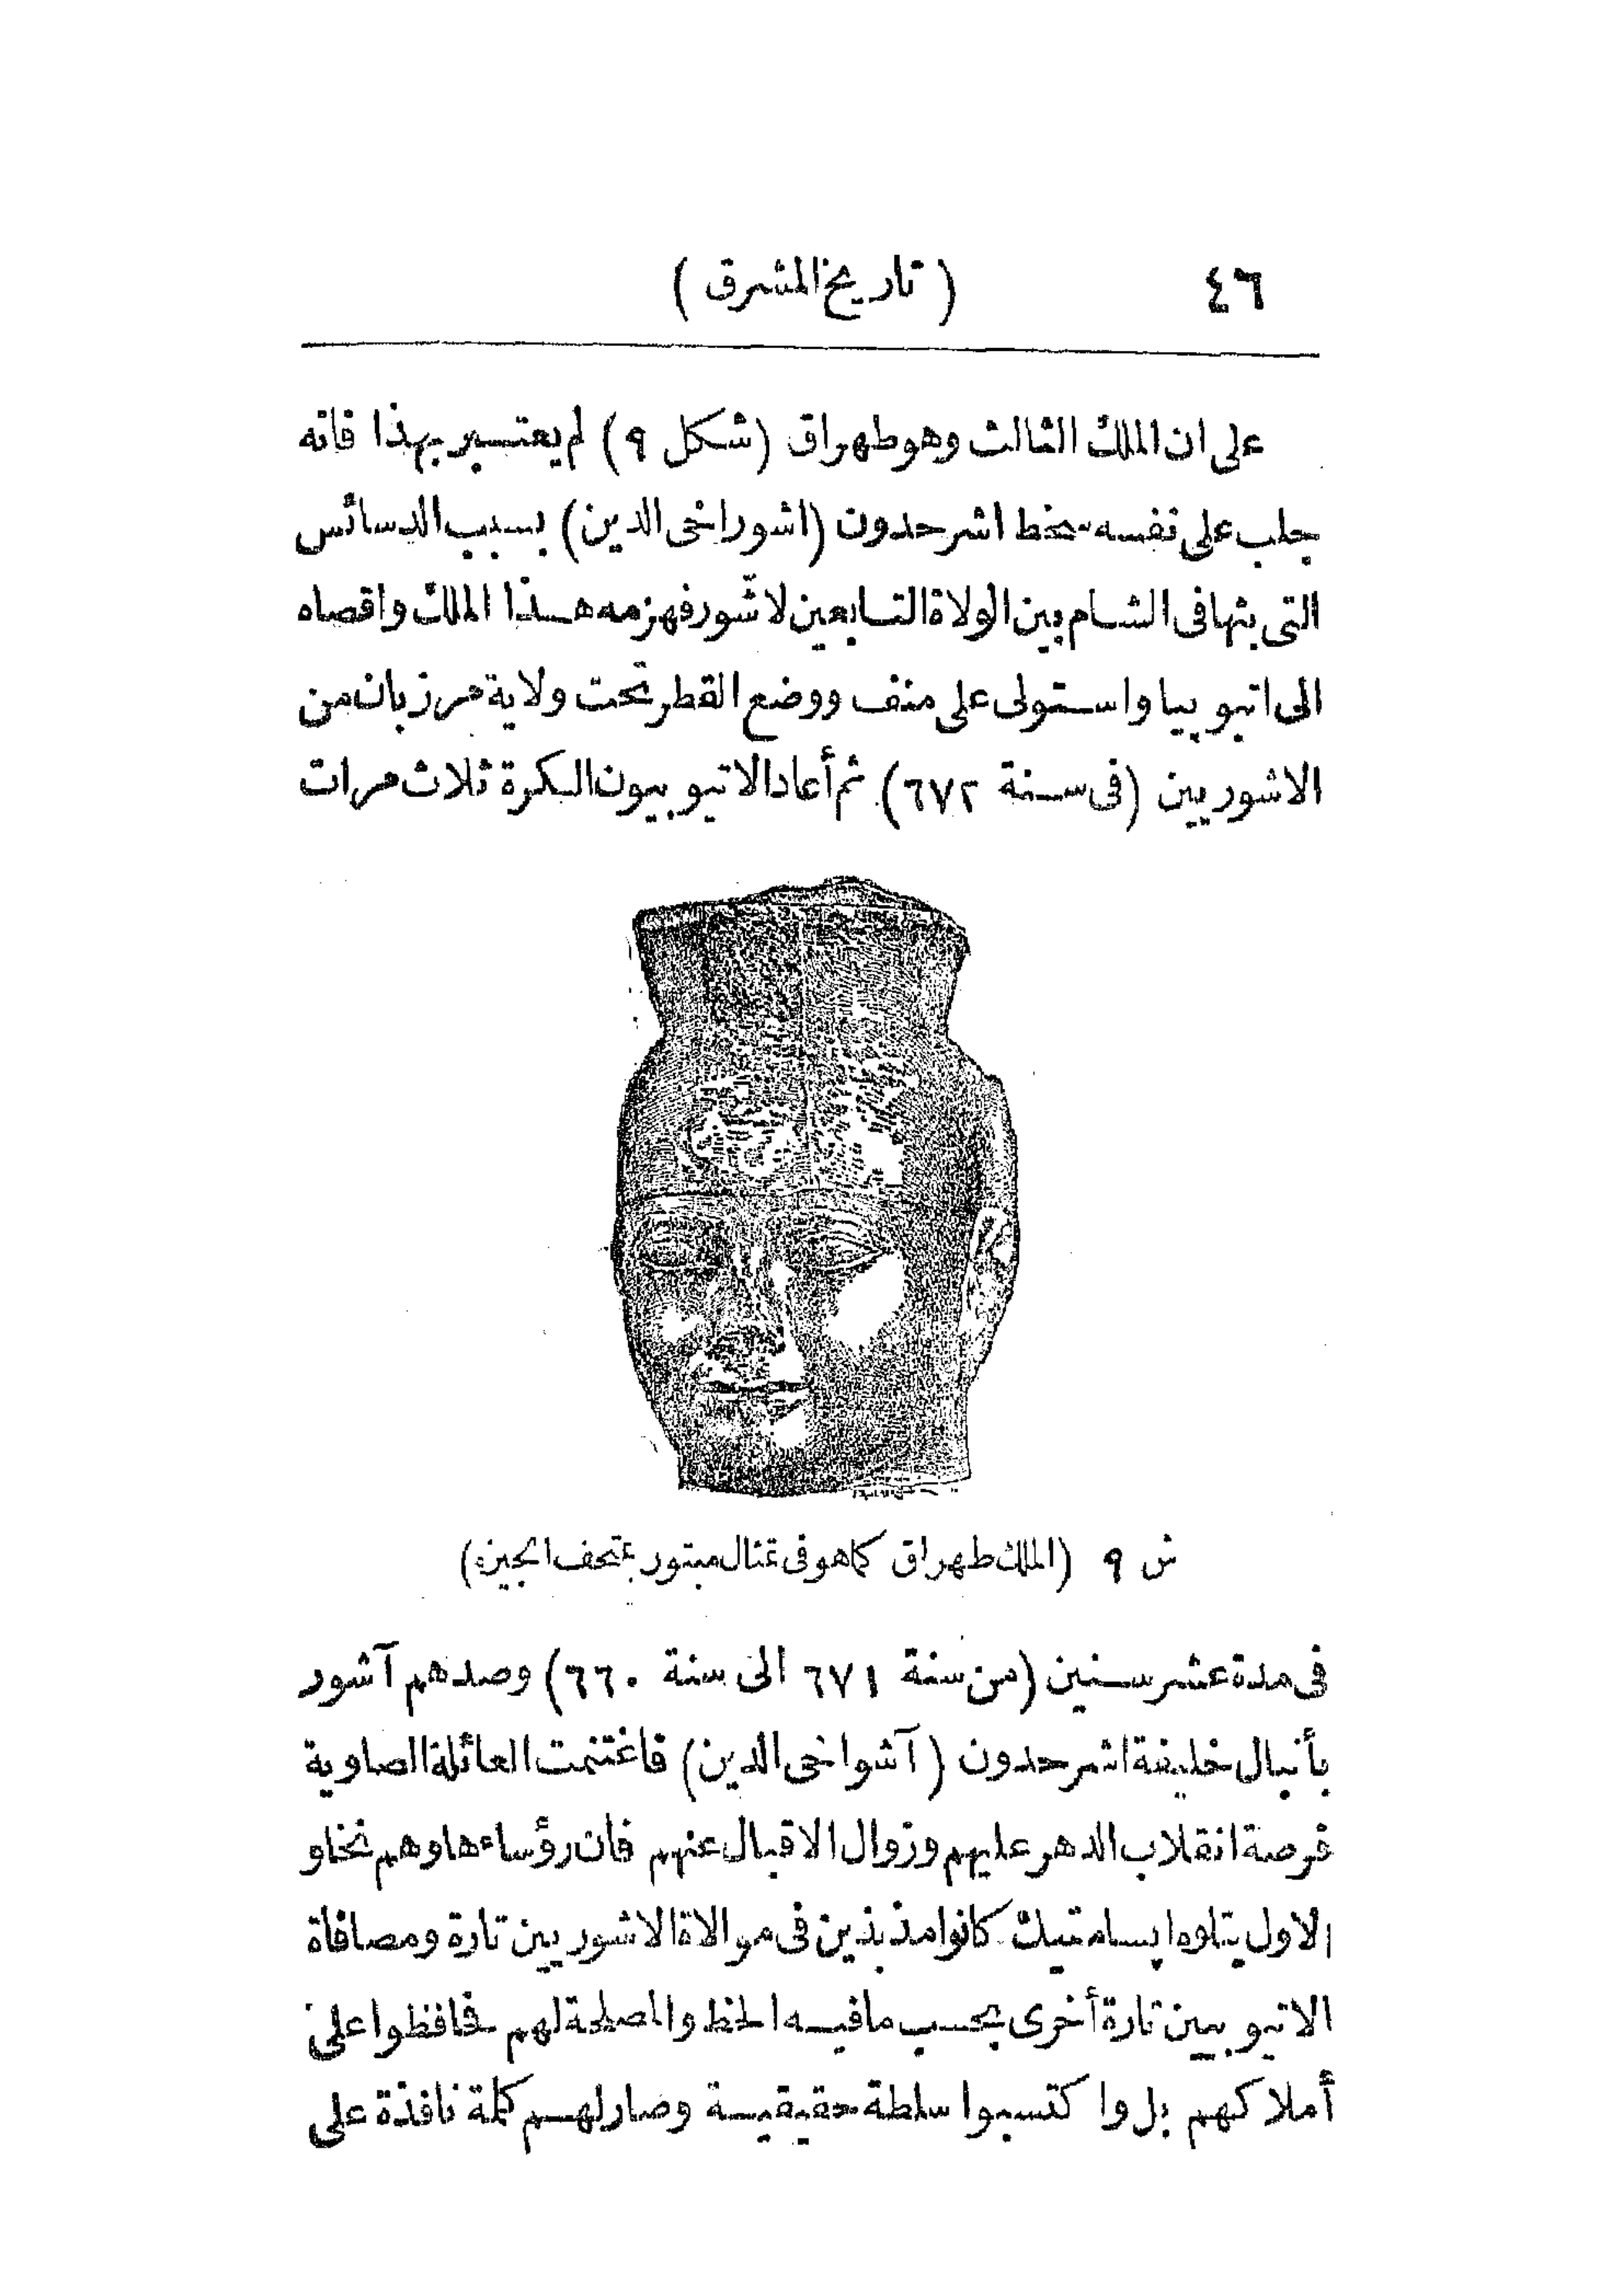 ٤٦ ( تاريخ المشرق )
على ان الملك الثالث وهو طهراق (شكل ٩) لم يعتبر بهذا فانه
جلب على نفسه سخط اشرحدون (اشور اخى الدين) بسبب الدسائس
التى بثها فى الشام بين الولاة التابعين لاشّور فهزمه هذا الملك واقصاه
الى اتيوبيا واستولى على منف ووضع القطر تحت ولاية مرزبان من
الاشوريين (فى سنة ٦٧٢) ثم أعاد الاتيوبيون الكرة ثلاث مرات
ش ٩ (الملك طهراق كما هو فى تمثال مبتور بمتحف الجيزه)
فى مدة عشر سنين (من سنة ٦٧١ الى سنة ٦٦٠) وصدهم آشور
بأنيبال خليفة اشرحدون (آشوا خى الدين) فاغتنمت العائلة الصاوية
فرصة انقلاب الدهر عليهم وزوال الاقبال عنهم فان رؤساءها وهم نخاو
الاول يتلوه ابسامتيك كانوا مذبذبين فى موالاة الاشوريين تارة ومصافاة
الاتيوبيين تارة أخرى بحسب ما فيه الحظ والمصلحة لهم فحافظوا على
أملاكهم بل واكتسبوا سلطة حقيقية وصار لهم كلمة نافذة على